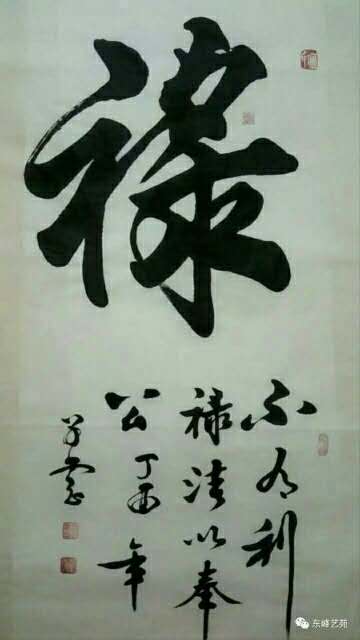 禄
不为利
禄 以奉
公 丁酉年
东峰艺苑